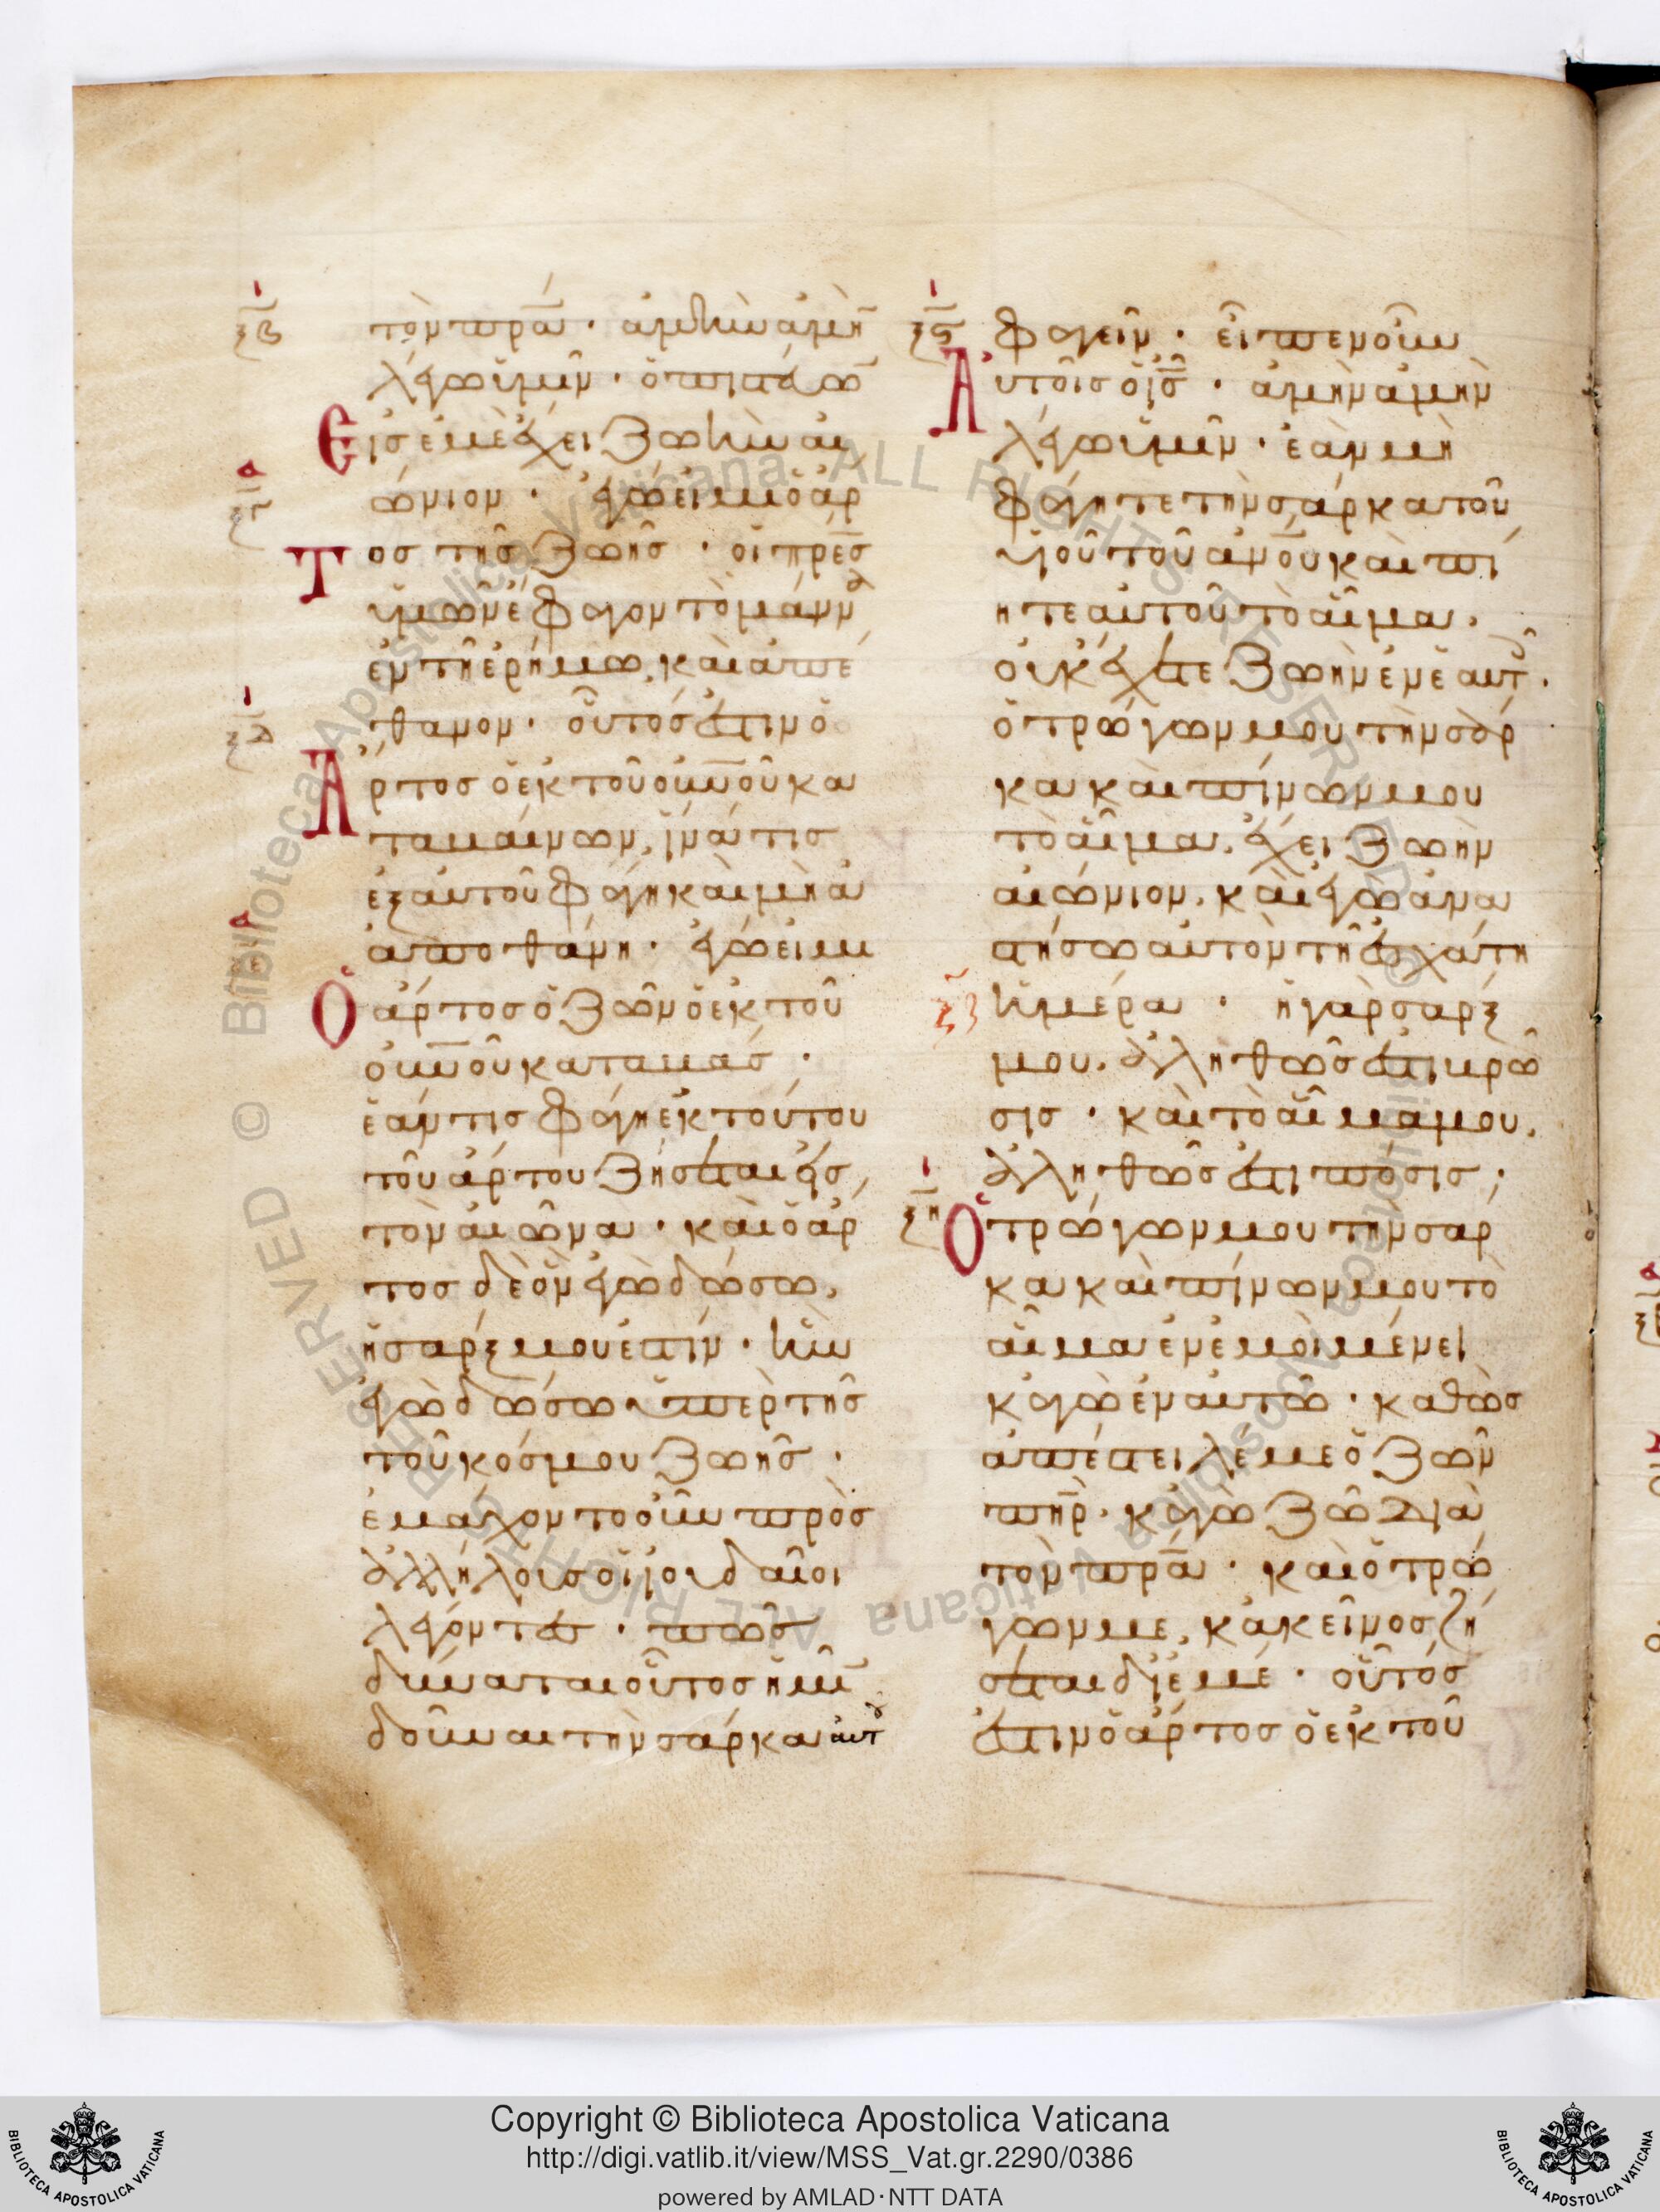 ξβ
τὸν πρα̅· ἀμὴν ἀμὴ̅
λέγω ὑμῖν· ὁ πιστεύω̅
Εἰς ἐμὲ ἔχει ζωὴν αἰ
ώνιον· ἐγώ εἰμι ὁ ἄρ
Τος τῆς ζωῆς· οἱ πρε̅ς
ὑμῶν ἔφαγον τὸ μάννα
ἐν τῆ ἐρήμω, καὶ ἀπέ
θανον· οὗτός ἐστιν ὁ
Ἄρτος ὁ ἐκ τοῦ ουνου κα
ταβαίνων, ἵνα τις
ἐξ αὐτοῦ φάγη καὶ μὴ ἀ
ἀποθάνη· ἐγώ εἰμι
Ὁ ἄρτος ὁ ζῶν ὁ ἐκ τοῦ
ουνου καταβάς·
ἐάν τις φάγη ἐκ τούτου
τοῦ ἄρτου ζήσεται εἰς
τὸν αἰῶνα· καὶ ὁ ἄρ
τος δὲ ὃν ἐγὼ δώσω,
ἡ σάρξ μου ἐστίν· ἣν
ἐγὼ δώσω ὑπὲρ τῆς
τοῦ κόσμου ζωῆς·
ἐμάχοντο οὖν πρὸς
ἀλλήλους οἱ ἰουδαῖοι
λέγοντες· πῶς
δύναται οὗτος ἡμῖ̅
δοῦναι τὴν σάρκα αὐτοῦ
ξς
φαγεῖν· εἶπεν οὖν
Αὐτοῖς ὁ ι̅ς̅· ἀμὴν ἀμὴν
λέγω ὑμῖν· ἐὰν μὴ
φάγητε τὴν σάρκα τοῦ
υἱοῦ τοῦ ανου καὶ πί
ητε αὐτοῦ τὸ αἷμα·
οὐκ ἔχετε ζωὴν ἐν ἑαυτοῖς·
ὁ τρώγων μου τὴν σάρ
κα καὶ πίνων μου
τὸ αἷμα, ἔχει ζωὴν
αἰώνιον, καὶ ἐγὼ ἀνα
στήσω αὐτὸν τῆ ἐσχάτη
ξζ
ἡμέρα· ἡ γὰρ σάρξ
μου, ἀληθῶς ἐστι βρῶ
σις· καὶ τὸ αἷμα μου,
ἀληθῶς ἐστι πόσις·
ξη
Ὁ τρώγων μου τὴν σάρ
κα καὶ πίνων μου τὸ
αἷμα ἐν ἐμοὶ μένει
κἀγὼ ἐν αὐτῶ· καθὼς
ἀπέστειλέ με ὁ ζῶν
πηρ· κἀγὼ ζῶ διὰ
τὸν πρα̅· καὶ ὁ τρώ
γων με, κἀκεῖνος ζή
σεται δι ἐμέ· οὗτός
ἐστιν ὁ ἄρτος ὁ ἐκ τοῦ
Copyright © Biblioteca Apostolica Vaticana
http://digi.vatlib.it/view/MSS_Vat.gr.2290/0386
powered by AMLAD·NTT DATA
BIBLIOTECA APOSTOLICA VATICANA
BIBLIOTECA APOSTOLICA VATICANA